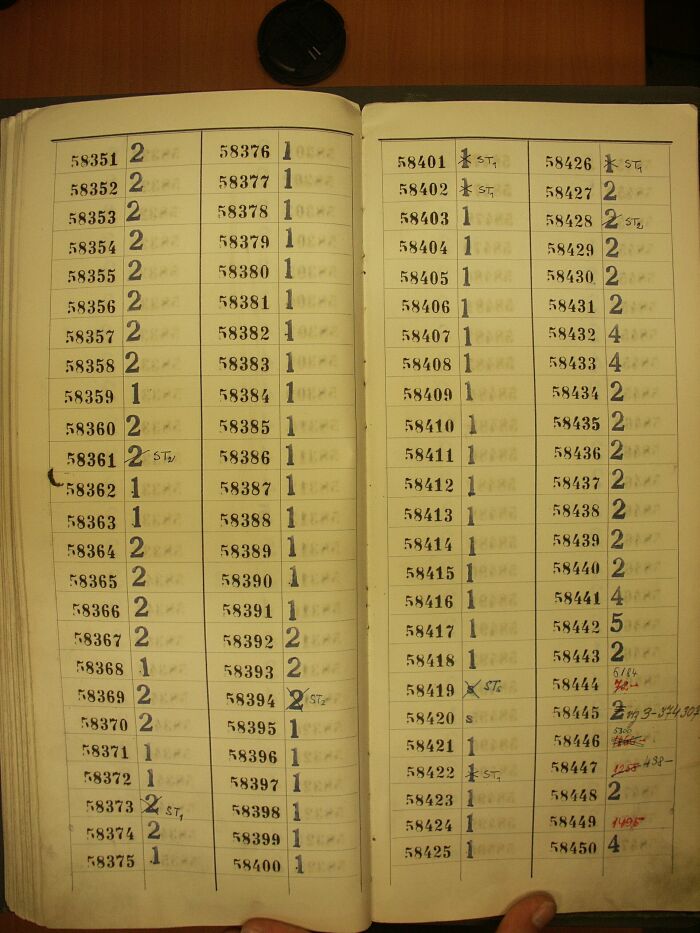 58351 2
58352 2
58353 2
58354 2
58355 2
58356 2
58357 2
58358 2
58359 1
58360 2
58361 2 ST2
58362 1
58363 1
58364 2
58365 2
58366 2
58367 2
58368 1
58369 2
58370 2
58371 1
58372 1
58373 2 ST1
58374 2
58375 1
58376 1
58377 1
58378 1
58379 1
58380 1
58381 1
58382 1
58383 1
58384 1
58385 1
58386 1
58387 1
58388 1
58389 1
58390 1
58391 1
58392 2
58393 2
58394 2 ST2
58395 1
58396 1
58397 1
58398 1
58399 1
58400 1
58401 1 ST1
58402 1 ST1
58403 1
58404 1
58405 1
58406 1
58407 1
58408 1
58409 1
58410 1
58411 1
58412 1
58413 1
58414 1
58415 1
58416 1
58417 1
58418 1
58419 s STs
58420 s
58421 1
58422 1 ST1
58423 1
58424 1
58425 1
58426 1 ST1
58427 2
58428 2 ST2
58429 2
58430 2
58431 2
58432 4
58433 4
58434 2
58435 2
58436 2
58437 2
58438 2
58439 2
58440 2
58441 4
58442 5
58443 2
58444 6184
58445 2
58446 5300
58447 1258 438-
58448 2
58449 1495
58450 4